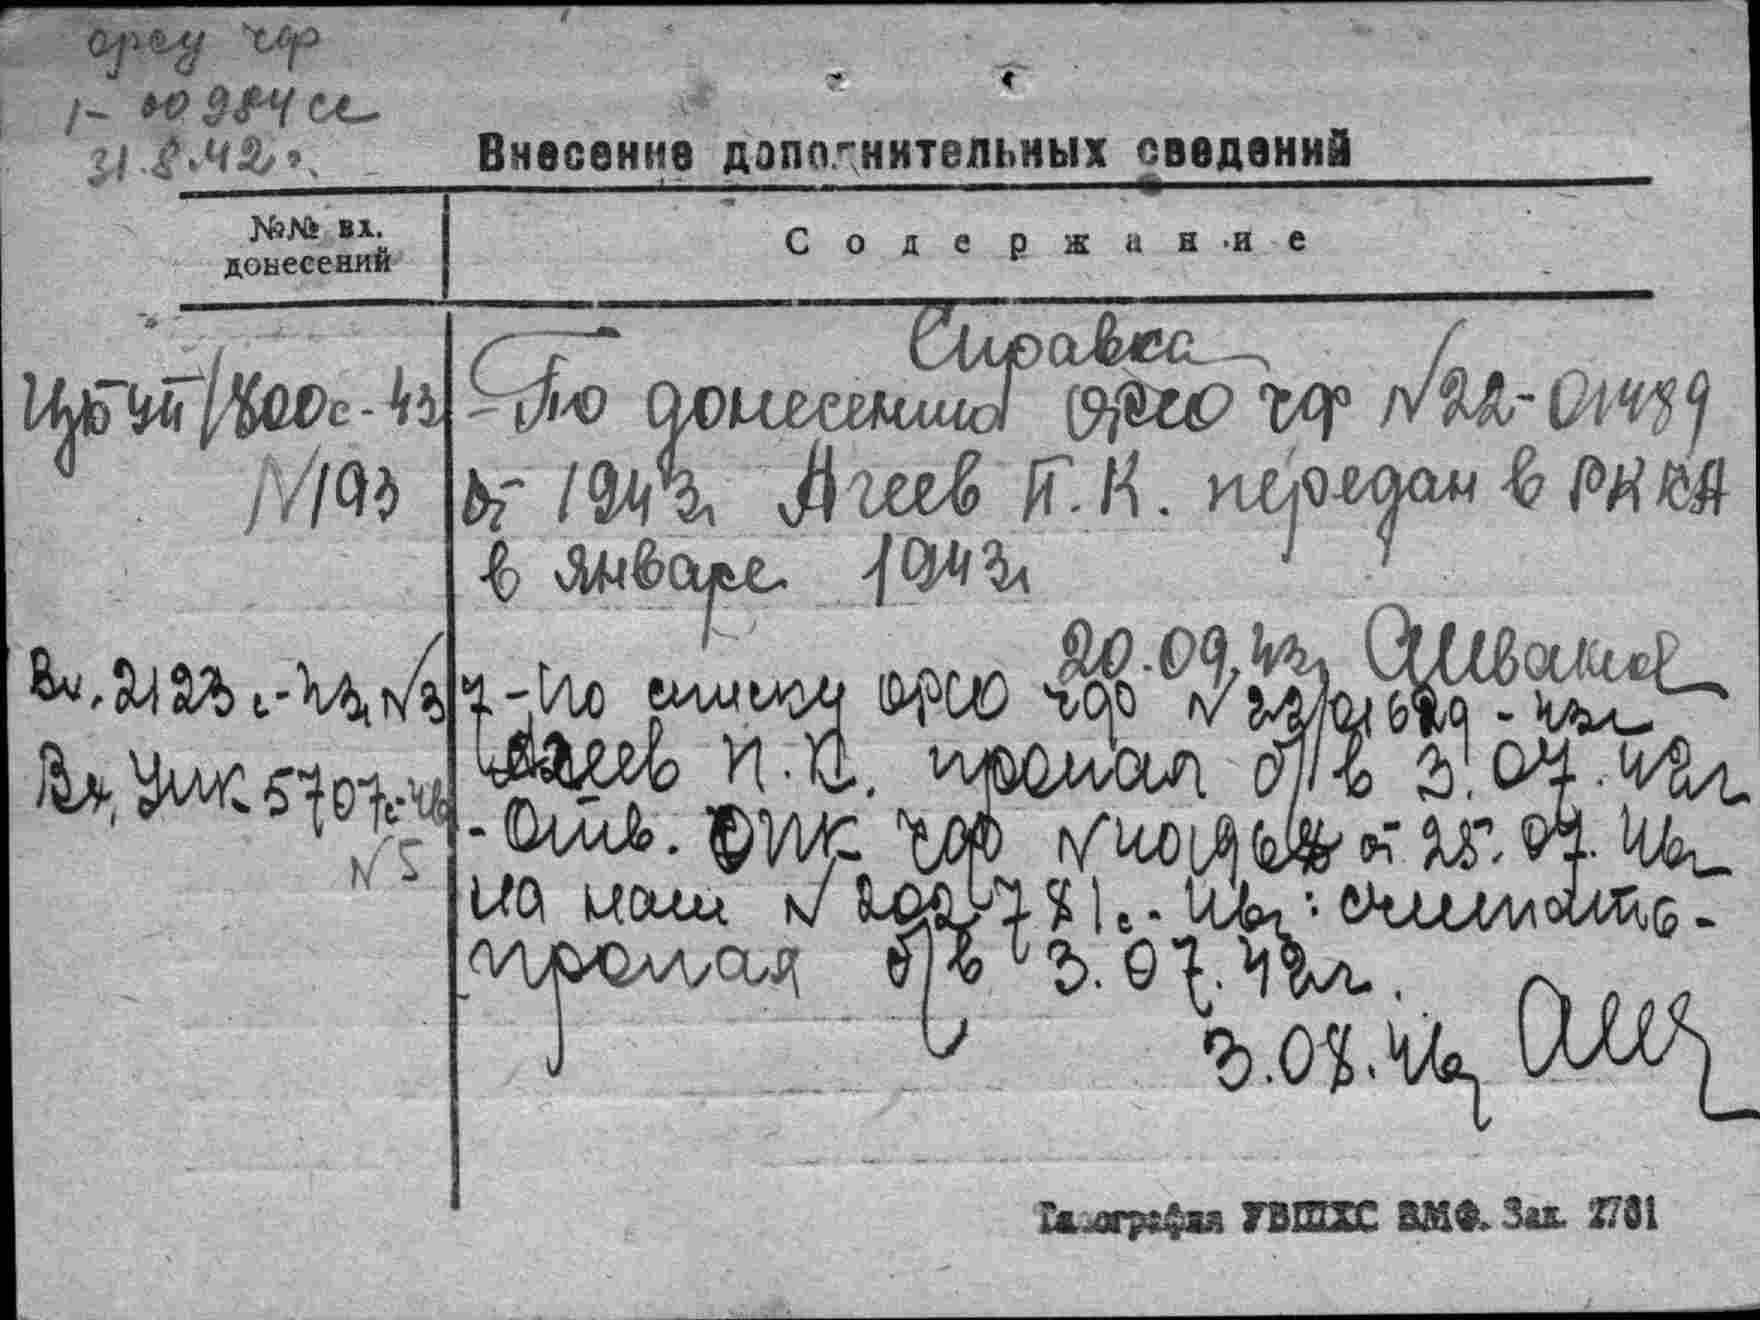 орсу чф
1-00984сс
31.8.42г.
Внесение дополнительных сведений
№№ вх.
донесений
Содержание
Справка
/800с-43
- По донесению орсо чф №22-01489
№193
от 1943г Агеев П.К. передан в РККА
в январе 1943г
20.09.43г
Вх. 2123с-43г №3
7 - По списку орсо чф №22/01629-43г
Агеев П.К. пропал б/в 3.07.42г
Вх. УПК 5707с-46
№5
- Отв. ОПК чф от 25.07.46г
на наш №202781с-46г: считать-
пропал б/в 3.07.42г.
3.08.46г
Типография УВШХС ВМФ. Зак. 2781